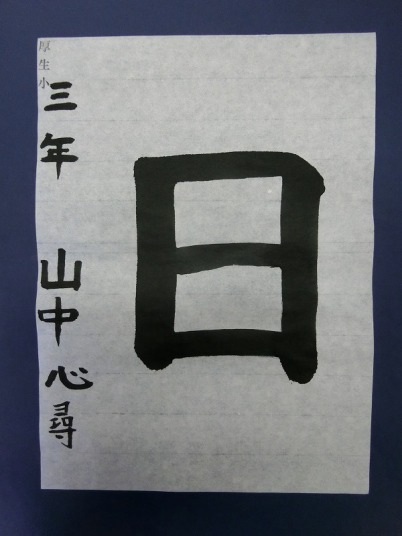 日
厚生小
三年 山中心尋